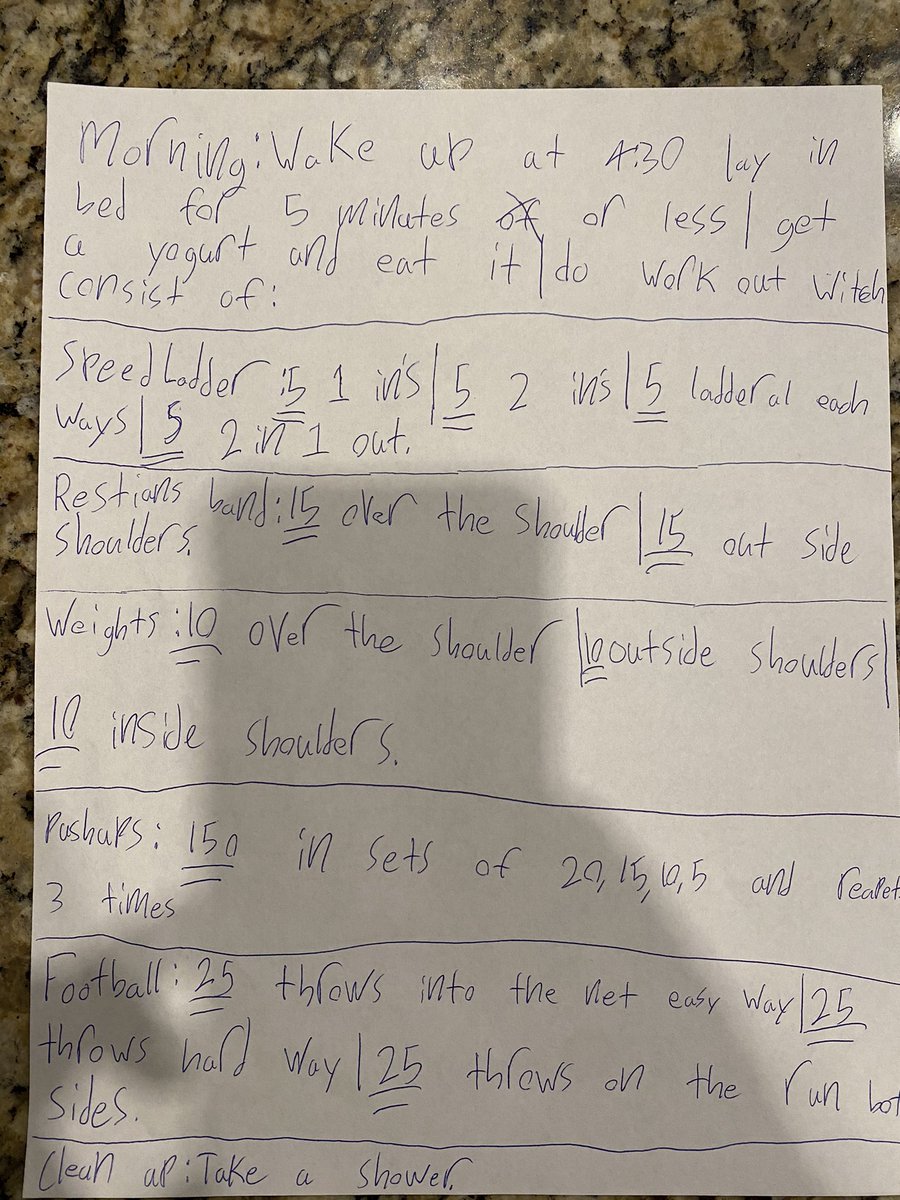 Morning: Wake up at 4:30 lay in
bed for 5 minutes or less | get
a yogurt and eat it | do work out witch
consist of:
Speed Ladder: 5 1 in's | 5 2 in's | 5 ladderal each
ways | 5 2 in 1 out.
Restians band: 15 over the shoulder | 15 out side
shoulders.
Weights: 10 over the shoulder | 10 outside shoulders |
10 inside shoulders.
Pushups: 150 in sets of 20, 15, 10, 5 and reapet
3 times
Football: 25 throws into the net easy way | 25
throws hard way | 25 throws on the run bot
sides.
Clean up: Take a shower.